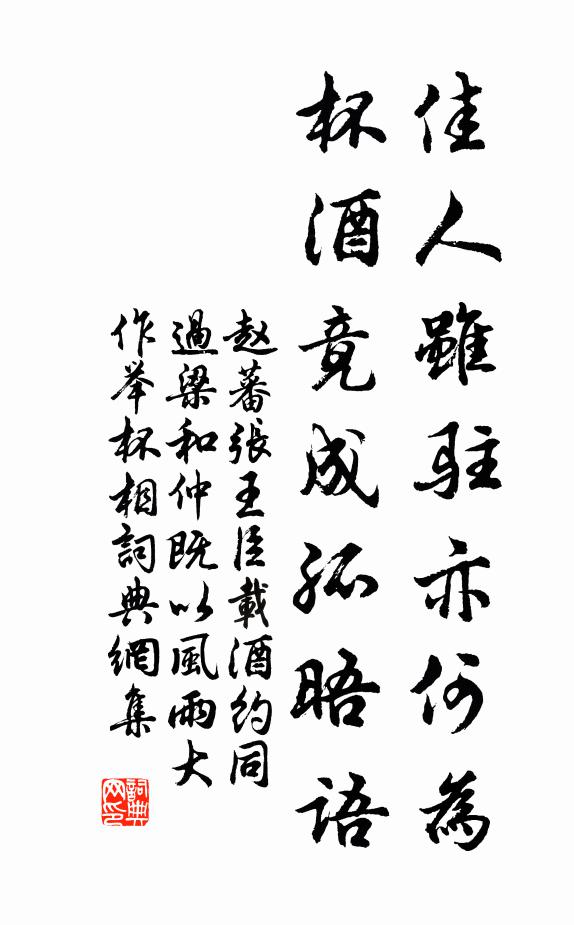 佳人雖駐亦何為
杯酒竟成孤晤語
赵蕃張王臣載酒約同
過梁和仲既以風雨大
作举杯相詞典網集
詞典
网印